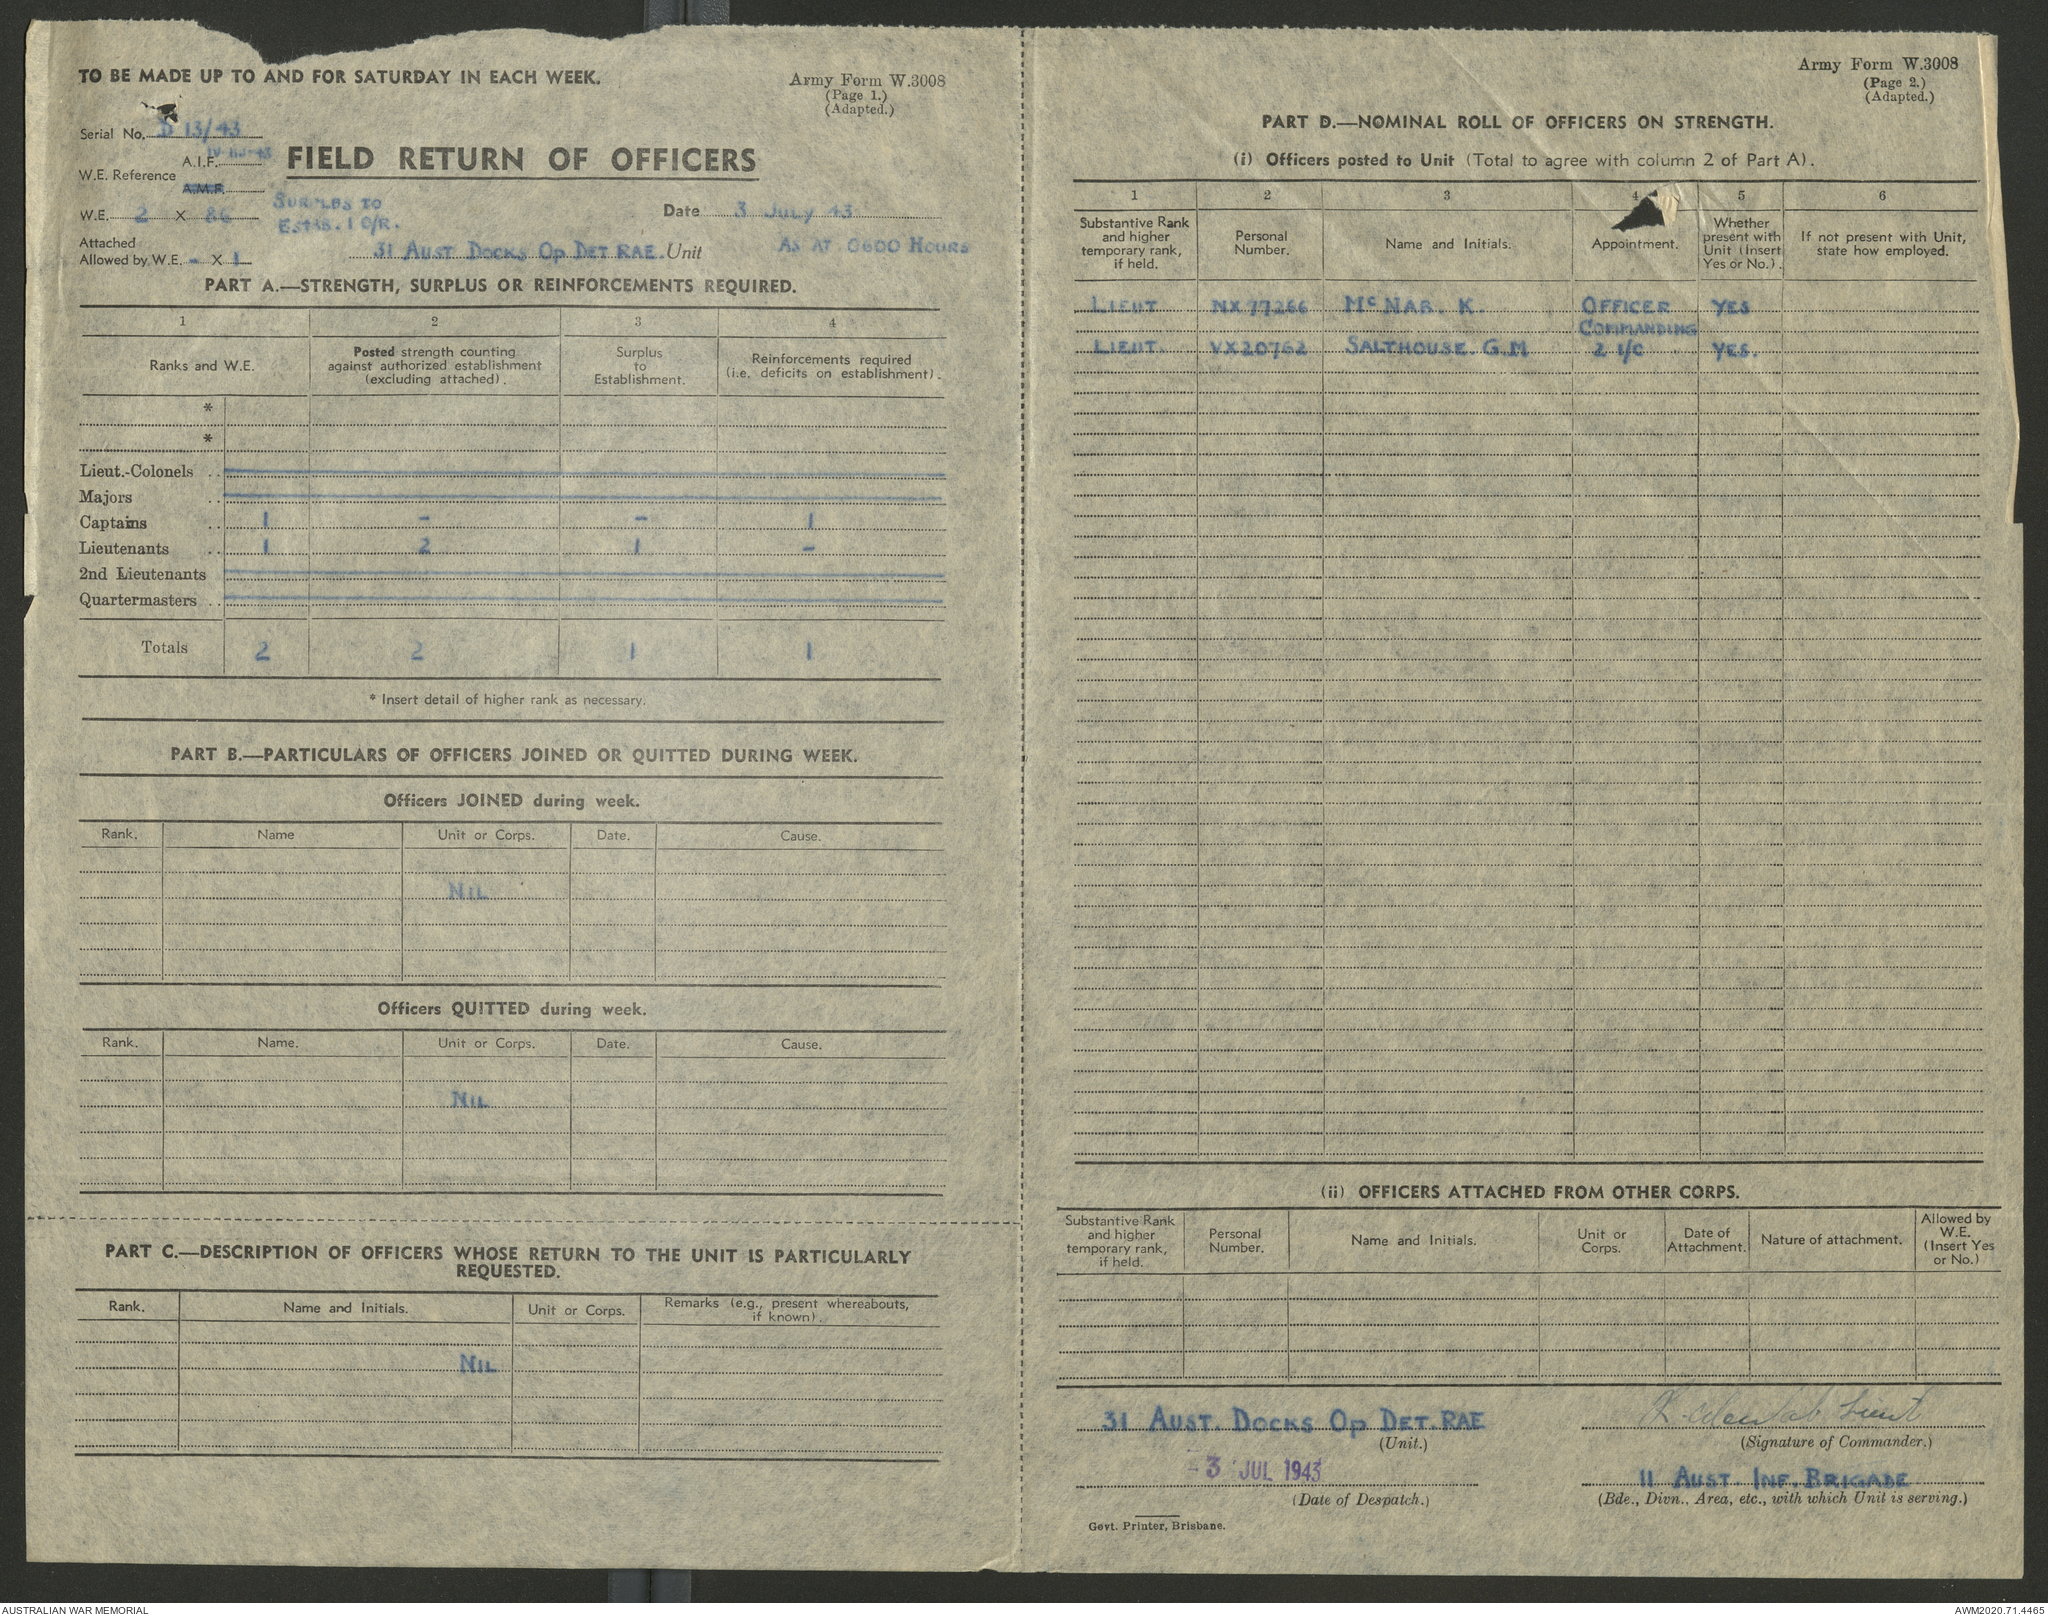 TO BE MADE UP TO AND FOR SATURDAY IN EACH WEEK.
Army Form W.3008
(Page 1.)
(Adapted.)
Serial No. S 13/43
A.I.F.
W.E. Reference
A.M.F.
FIELD RETURN OF OFFICERS
W.E. 2 X 86
SURPLUS TO
ESTAB. 1 O/R.
Date 3 JULY 43
Attached
Allowed by W.E. - X 1
31 AUST DOCKS OP DET RAE. Unit
AS AT 0600 HOURS
PART A.—STRENGTH, SURPLUS OR REINFORCEMENTS REQUIRED.
1 2 3 4
Ranks and W.E.
Posted strength counting
against authorized establishment
(excluding attached).
Surplus
to
Establishment.
Reinforcements required
(i.e. deficits on establishment).
*
*
Lieut.-Colonels ..
Majors ..
Captains .. 1 - - 1
Lieutenants .. 1 2 1 -
2nd Lieutenants
Quartermasters ..
Totals 2 2 1 1
* Insert detail of higher rank as necessary.
PART B.—PARTICULARS OF OFFICERS JOINED OR QUITTED DURING WEEK.
Officers JOINED during week.
Rank. Name Unit or Corps. Date. Cause.
NIL
Officers QUITTED during week.
Rank. Name. Unit or Corps. Date. Cause.
NIL
PART C.—DESCRIPTION OF OFFICERS WHOSE RETURN TO THE UNIT IS PARTICULARLY
REQUESTED.
Rank. Name and Initials. Unit or Corps. Remarks (e.g., present whereabouts,
if known).
NIL
Army Form W.3008
(Page 2.)
(Adapted.)
PART D.—NOMINAL ROLL OF OFFICERS ON STRENGTH.
(i) Officers posted to Unit (Total to agree with column 2 of Part A).
1 2 3 4 5 6
Substantive Rank
and higher
temporary rank,
if held.
Personal
Number.
Name and Initials.
Appointment.
Whether
present with
Unit (Insert
Yes or No.).
If not present with Unit,
state how employed.
LIEUT NX77266 McNAB. K. OFFICER YES
COMMANDING
LIEUT. VX20762 SALTHOUSE. G.M 2 I/C YES.
(ii) OFFICERS ATTACHED FROM OTHER CORPS.
Substantive Rank
and higher
temporary rank,
if held.
Personal
Number.
Name and Initials.
Unit or
Corps.
Date of
Attachment.
Nature of attachment.
Allowed by
W.E.
(Insert Yes
or No.)
31 AUST. DOCKS OP DET. RAE
(Unit.)
Lieut
(Signature of Commander.)
- 3 JUL 1943
(Date of Despatch.)
11 AUST. INF. BRIGADE
(Bde., Divn., Area, etc., with which Unit is serving.)
Govt. Printer, Brisbane.
AUSTRALIAN WAR MEMORIAL
AWM2020.71.4465